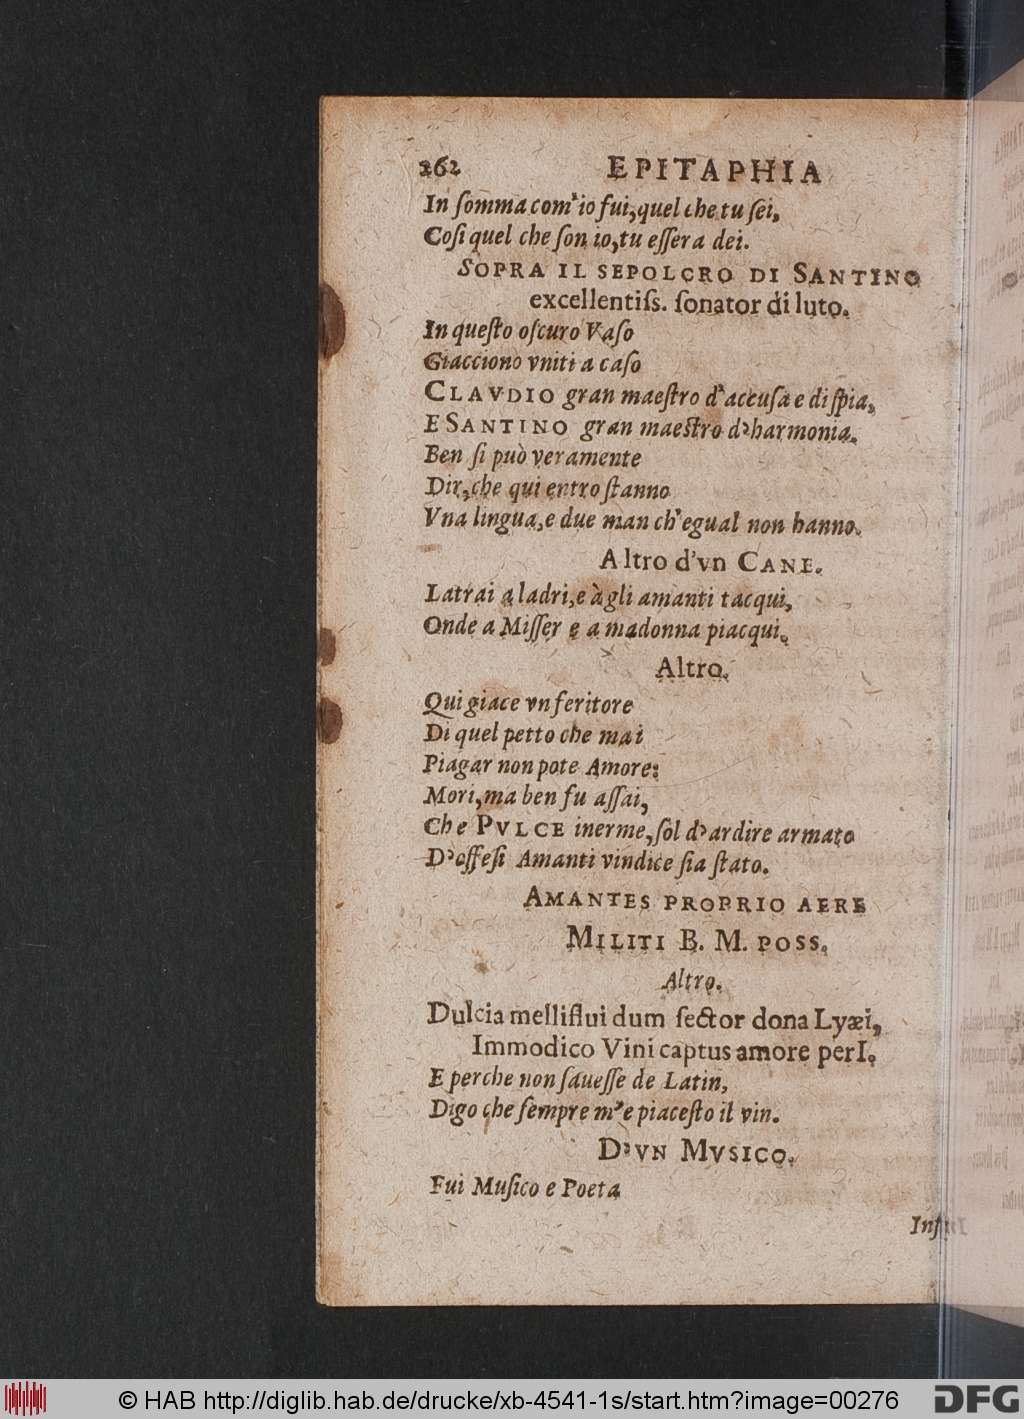 262 EPITAPHIA
In ſomma com'io fui, quel che tu ſei,
Coſi quel che ſon io, tu eſſer a dei.
SOPRA IL SEPOLCRO DI SANTINO
excellentiſs. ſonator di luto.
In queſto oſcuro Vaſo
Giacciono vniti a caſo
CLAVDIO gran maeſtro d'accuſa e di ſpia,
E SANTINO gran maeſtro d'harmonia.
Ben ſi può veramente
Dir, che qui entro ſtanno
Vna lingua, e due man ch'egual non hanno.
Altro d'vn CANE.
Latrai a ladri, e à gli amanti tacqui,
Onde a Miſſer e a madonna piacqui.
Altro.
Qui giace vn feritore
Di quel petto che mai
Piagar non pote Amore:
Mori, ma ben fu aſſai,
Che PVLCE inerme, ſol d'ardire armato
D'offeſi Amanti vindice ſia ſtato.
AMANTES PROPRIO AERE
MILITI B. M. POSS.
Altro.
Dulcia melliflui dum ſector dona Lyæi,
Immodico Vini captus amore perI.
E perche non ſaueſſe de Latin,
Digo che ſempre m'e piaceſto il vin.
D'VN MVSICO.
Fui Muſico e Poeta
© HAB http://diglib.hab.de/drucke/xb-4541-1s/start.htm?image=00276
DFG